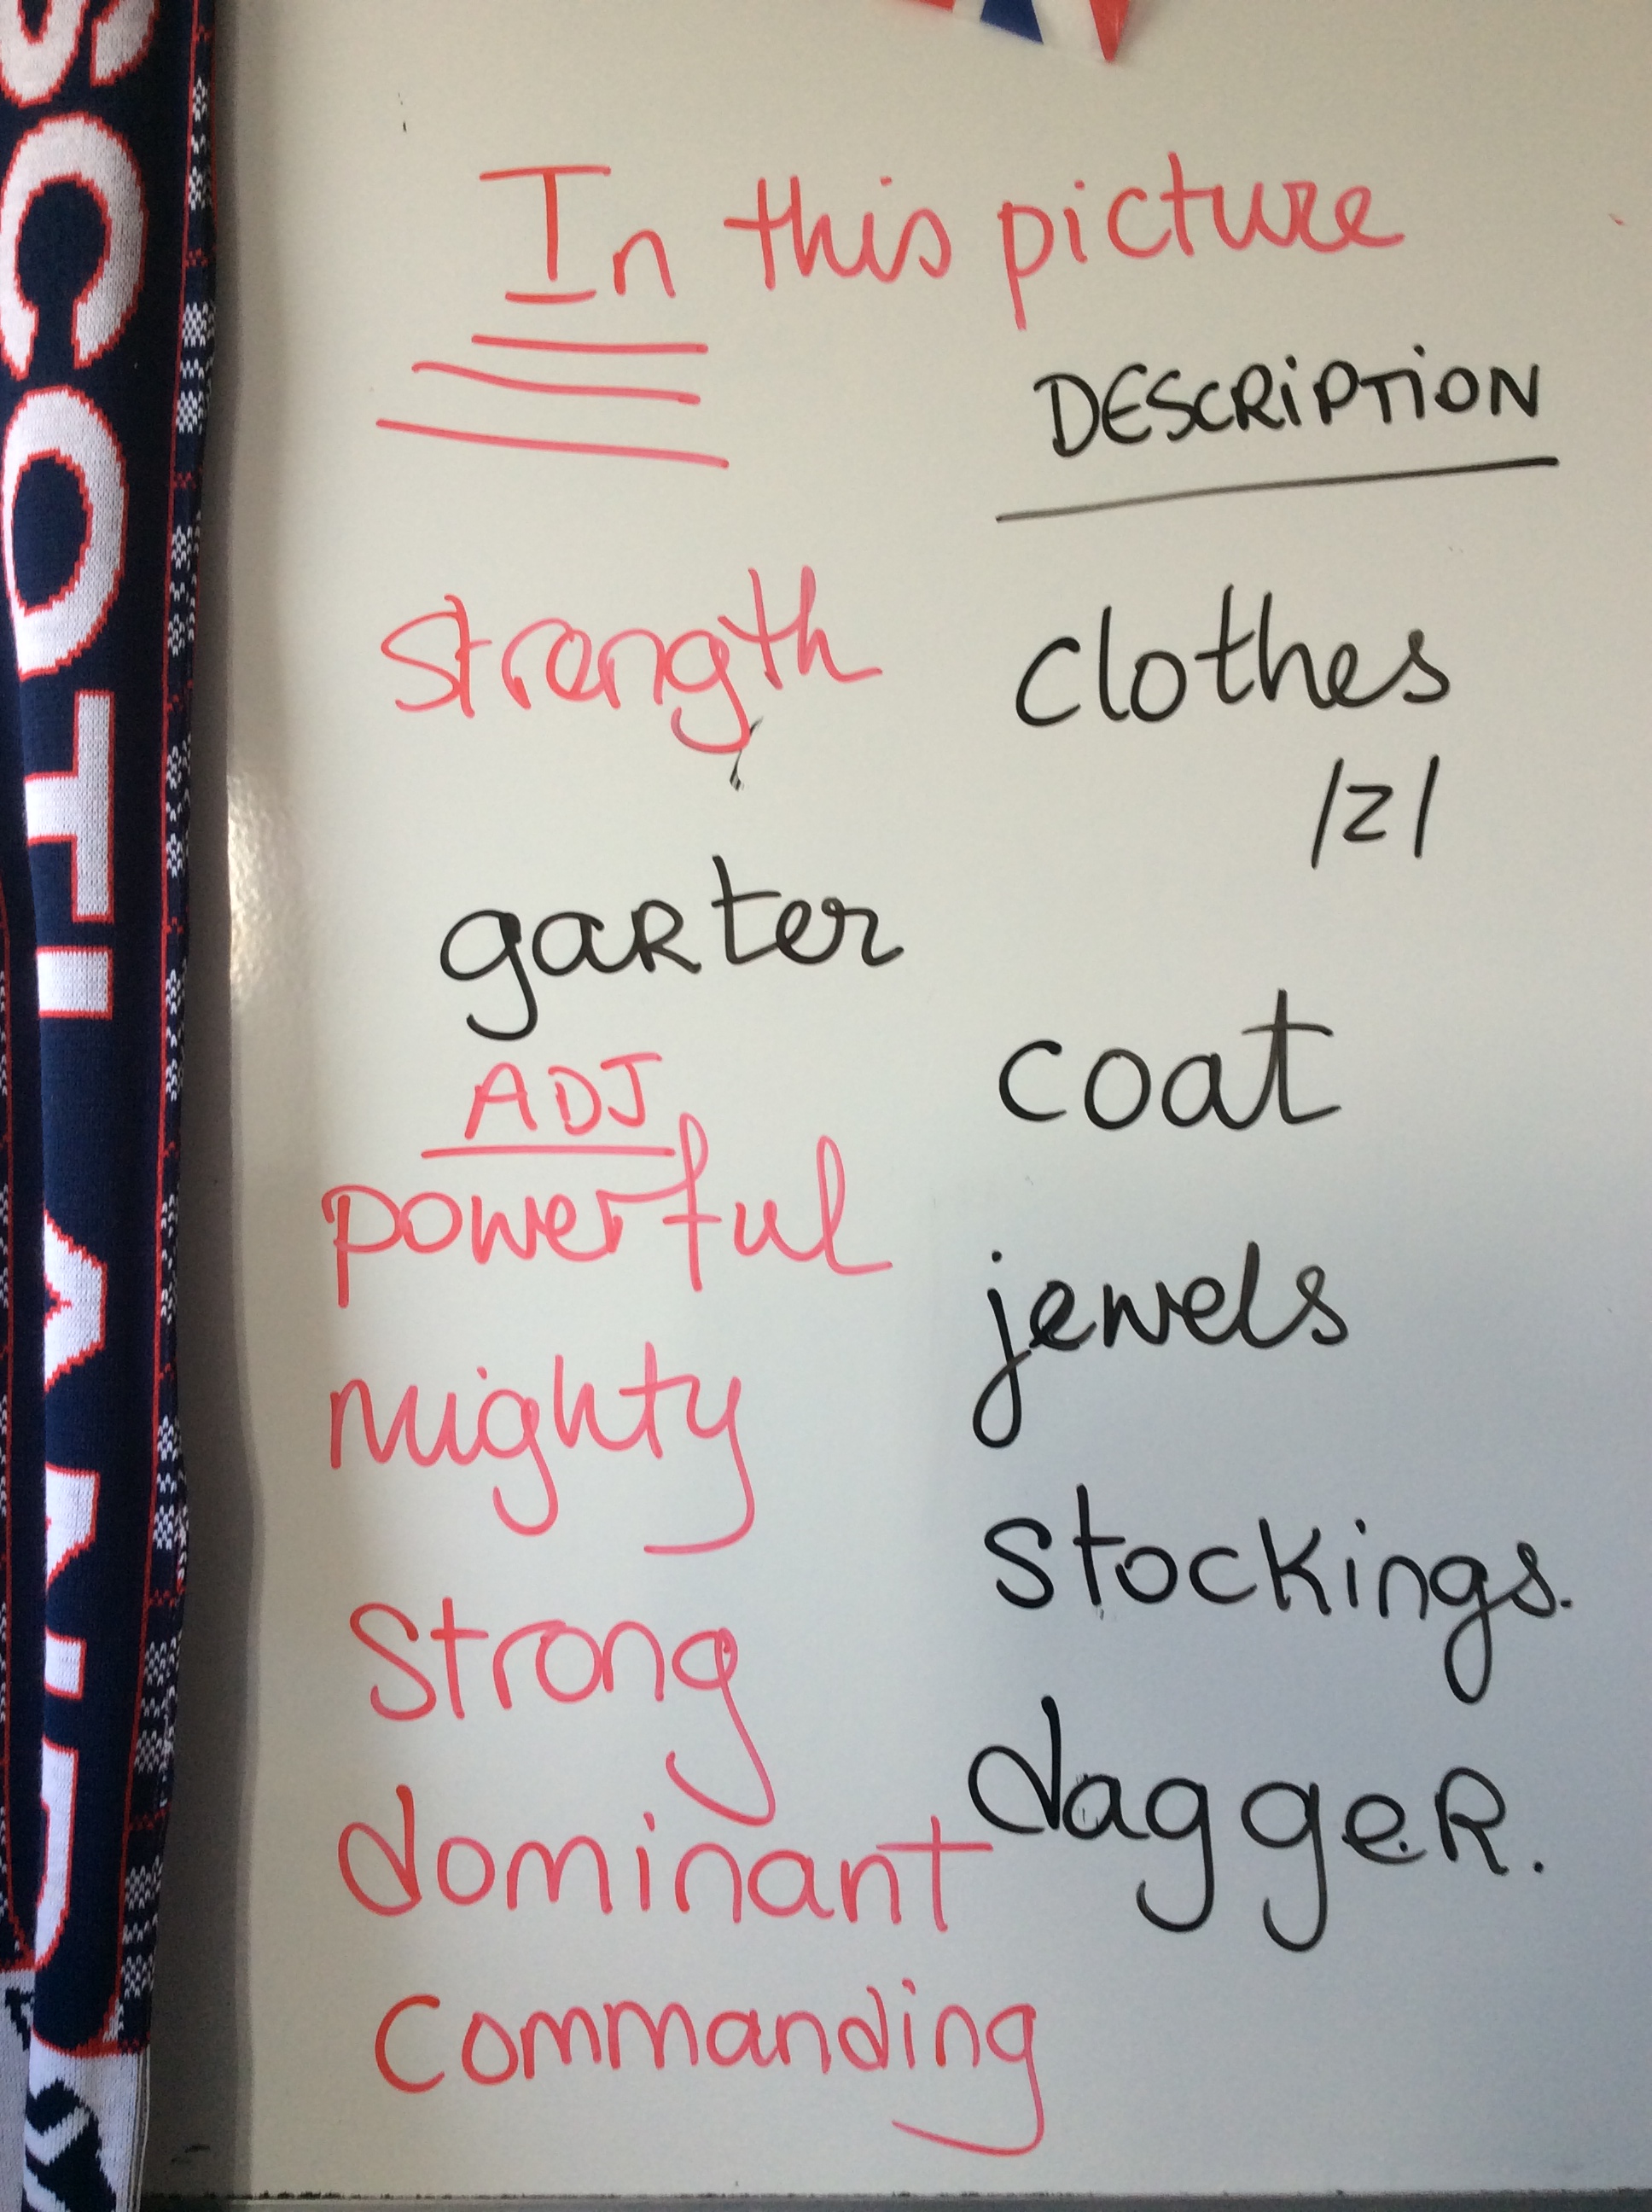 SCOTLAND
In this picture
DESCRIPTION
strength
clothes
/z/
garter
coat
ADJ
powerful
jewels
mighty
stockings.
strong
dagger.
dominant
commanding